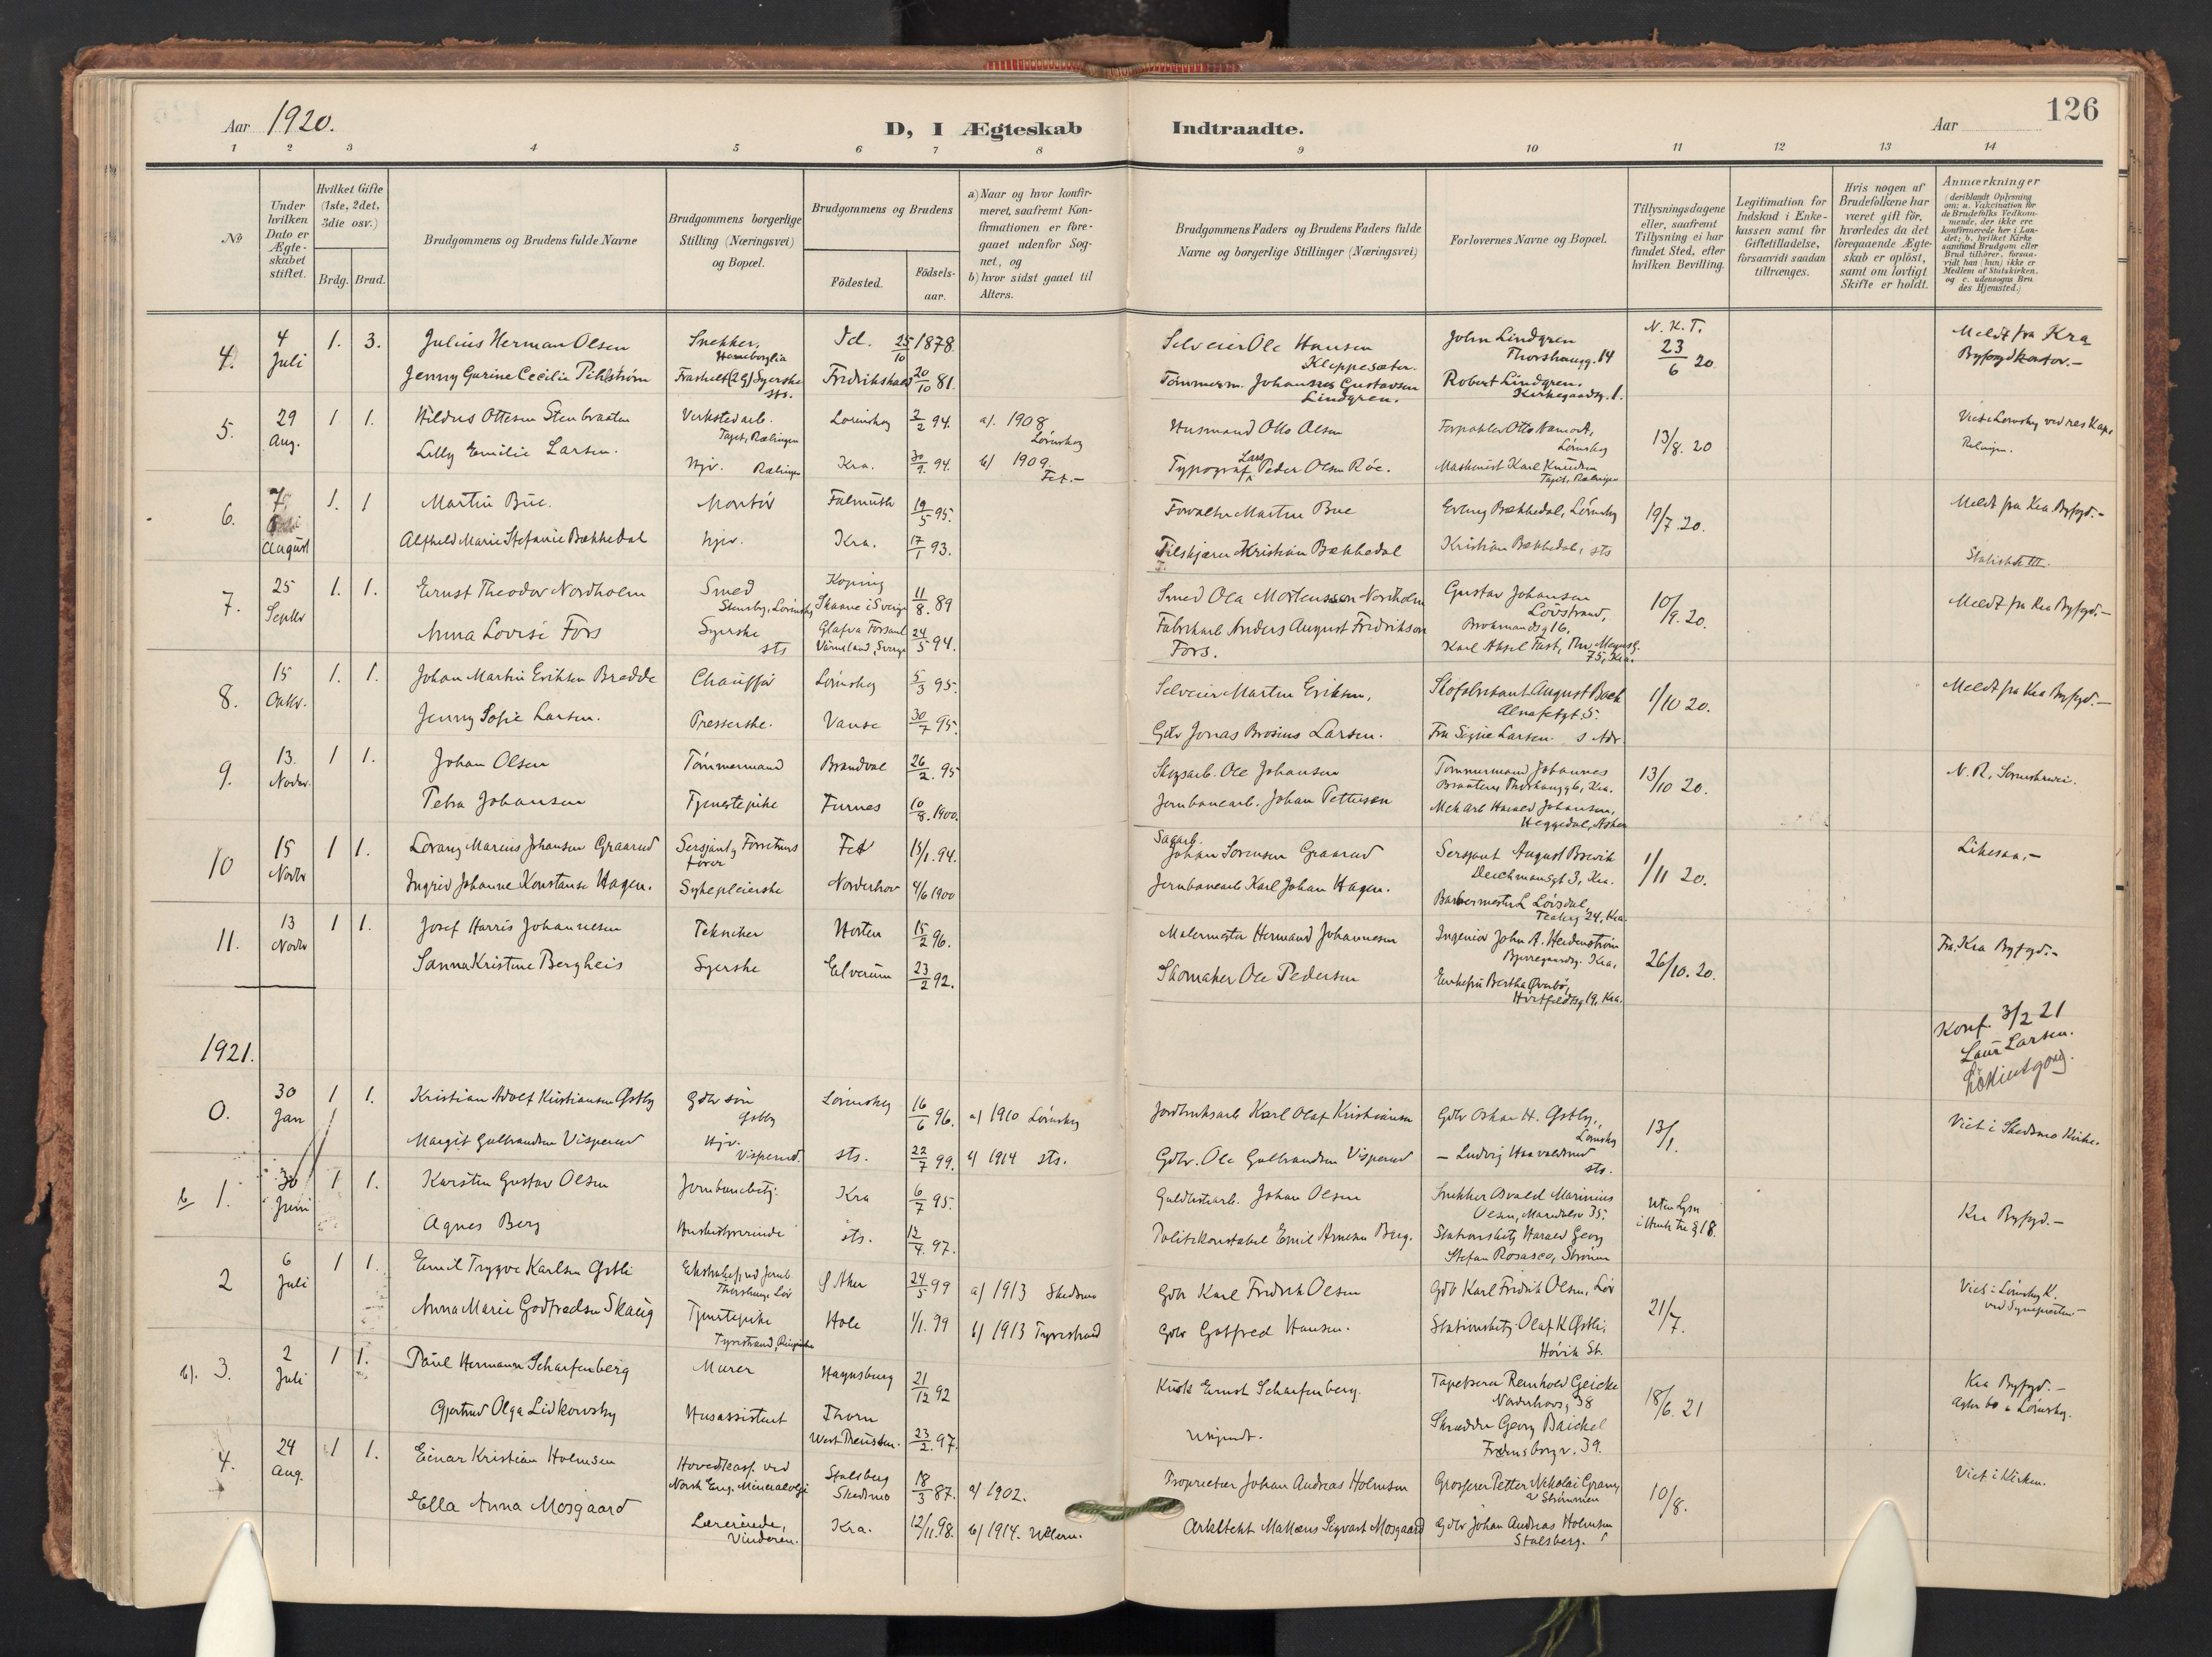 126
Aar 1920.
D, I Ægteskab Indtraadte.
Aar
1 2 3 4 5 6 7 8 9 10 11 12 13 14
No
Under hvilken Dato er Ægte-skabet stiftet.
Hvilket Gifte (1ste, 2det, 3die osv.)
Brdg. Brud.
Brudgommens og Brudens fulde Navne
Brudgommens borgerlige Stilling (Næringsvei) og Bopæl.
Brudgommens og Brudens
Födested.
Födsels-aar.
a) Naar og hvor konfir-meret, saafremt Kon-firmationen er fore-gaaet udenfor Sog-net, og
b) hvor sidst gaaet til Alters.
Brudgommens Faders og Brudens Faders fulde Navne og borgerlige Stillinger (Næringsvei)
Forlovernes Navne og Bopæl.
Tillysningsdagene eller, saafremt Tillysning ei har fundet Sted, efter hvilken Bevilling.
Legitimation for Indskud i Enke-kassen samt for Giftetilladelse, forsaavidt saadan tiltrænges.
Hvis nogen af Brudefolkene har været gift för, hvorledes da det foregaaende Ægte-skab er oplöst, samt om lovligt Skifte er holdt.
Anmærkninger (deriblandt Oplysning om: a. Vakcination for de Brudefolks Vedkom-mende, der ikke ere konfirmerede her i Lan-det; b. hvilket Kirke samfund Brudgom eller Brud tilhörer, forsaa-vidt han (hun) ikke er Medlem af Statskirken, og c. udensogns Bru des Hjemsted.)
4. 4 Juli 1. 3. Julius Herman Olsen Snekker, 25/10 1878
Selveier Ole Hansen Kleppesæter. John Lindgren Thorshaugg. 14 N. K. T. 23/6 20 Meldt fra Kra Byfogdkontor.-
Jenny Gurine Cecilie Pihlstrøm Syerske sts. Fredrikshald 20/10 81.
Tømmerm. Johannes Gustavsen Lindgren. Robert Lindgren. Kirkegaardsg. 1.
5. 29 Aug. 1 1. Hildus Ottesen Stenbraaten Verkstedarb. Rælingen Lørenskog 2/2 94. a). 1908 Lørenskog
Husmand Otto Olsen Lørenskog 13/8. 20
Lilly Emilie Larsen. Hjv. Rælingen Kra. 30/9. 94. b) 1909. Fet.-
Typograf Lars Peder Olsen Röe. Maskinist Karl Knudsen Rælingen
6. 7 August 1. 1 Martin Bue. Montør Falmuth 19/5 95.
Forvalter Martin Bue Erling Bækkedal, Lørenskog 19/7. 20. Meldt fra Kra Byfogd.-
Alfhild Marie Stefanie Bækkedal Hjv. Kra. 17/1 93.
Kristian Bækkedal Kristian Bækkedal, sts
7. 25 Septbr 1. 1. Ernst Theodor Nordholm Smed Köping Skaane i Sverige 11/8. 89
Smed Ola Mortensson Nordholm Gustav Johansen 10/9. 20. Meldt fra Kra Byfogd.-
Anna Lovise Fors Syerske sts Värmland, Sverige 24/5 94.
Fabrikarb Anders August Fredrikson Fors. 75, Kra.
8. 15 Oktbr. 1. 1. Johan Martin Eriksen Brædde Chauffør Lørenskog 5/3 95.
Selveier Martin Eriksen, Skofabrikant August Back 1/10 20. Meldt fra Kra Byfogd.-
Jenny Sofie Larsen. Presserske. Vanse 30/7 95.
Gdbr Jonas Brosius Larsen. Fru Signe Larsen. s Adr.
9. 13. Novbr. 1 1. Johan Olsen Tømmermand Brandval 26/2. 95
Skogsarb. Ole Johansen Tømmermand Johannes Braaten 13/10 20.
Petra Johansen Tjenestepike Furnes 10/8. 1900.
Jernbanearb. Johan Pettersen Mek arb Harald Johansen, Heggedal, Asker
10 15 Novbr 1 1. Lorang Marius Johansen Graarud Sersjant Fet 15/1. 94.
Sagarb. Johan Sorensen Graarud Sersjant August Brevik Deichmansgt 3, Kra. 1/11 20. Likesaa.-
Ingrid Johanne Konstanse Hagen. Sykepleierske Norderhov 4/6 1900
Jernbanearb Karl Johan Hagen. Barbermester L Lövsdal, 24, Kra.
11. 13 Novbr 1 1. Josef Harris Johannesen Tekniker Horten 15/2 96.
Malermester Hermand Johannesen Ingeniør John A. Heidenstrøm Kra, 26/10. 20. Fra Kra Byfogd.-
Sanna Kristine Bergheis Syerske Elverum 23/2 92.
Skomaker Ole Pedersen Enkefru Bertha Øverbö, 19, Kra.
1921.
Konf. 3/2 21
Laur Larsen.
0. 30 Jan 1 1. Kristian Adolf Kristiansen Østby Gdbr søn Østby Lørenskog 16/6 96. a) 1910 Lørenskog
Jordbruksarb Karl Olaf Kristiansen Gdbr Oskar H. Østby, Lørenskog 13/1. Viet i Skedsmo Kirke.
Margit Gulbrandsen Visperud Hjv. Visperud. sts. 22/7 99. b) 1914 sts.
Gdbr. Ole Gulbrandsen Visperud - Ludvig Haavaldsrud sts.
b 1. 30 Juni 1 1. Karsten Gustav Olsen Jernbanebetj. Kra 6/7 95.
Guldlistarb. Johan Olsen Snekker Osvald Marinius Olsen, Maridalsv 35. Uten Lysn § 18. Kra Byfogd.-
Agnes Berg Husbestyrerinde sts. 12/4. 97.
Politikonstabel Emil Arnesen Berg. Stationsbetj Harald Georg Stefan Rosasco, Strømmen
2 6 Juli 1 1. Emil Trygve Karlsen Østli Ø Aker 24/5 99 a) 1913 Skedsmo
Gdbr Karl Fredrik Olsen Gdb Karl Fredrik Olsen, Lør 21/7. Viet i Lørenskog K.
Anna Marie Godfredsen Skaug Tjenestepike Tyristrand, Ringerike Hole 1/1. 99 b) 1913 Tyristrand
Gdbr Gotfred Hansen. Stationsbetj Olaf K Østli, Høvik St.
b). 3. 2 Juli 1 1. Paul Hermann Scharfenberg Murer 21/12 92
Kusk Ernst Scharfenberg. Tapetserer Reinhold Geicke Norderhovs, 38 18/6. 21 Kra Byfogd.- agter bo i Lørenskog.
Gjertrud Olga Lidkowsky Husassistent Thorn West Preussen. 23/2. 97.
Ukjendt. Skrædder Georg Baickel Fredensborgv. 39.
4. 24 Aug. 1 1. Einar Kristian Holmsen Hovedkass. ved Norsk Eng. Mineralolje Stalsberg Skedsmo 18/3 87. a) 1902.
Proprietær Johan Andreas Holmsen Grosserer Petter Nikolai Strømmen 10/8. Viet i Kirken.
Ella Anna Mosgaard Lærerinde, Vinderen. Kra. 12/11. 98. b) 1914. Ullern.
Arkitekt Mattæus Sigvart Mosgaard Gdbr Johan Andreas Holmsen Stalsberg.